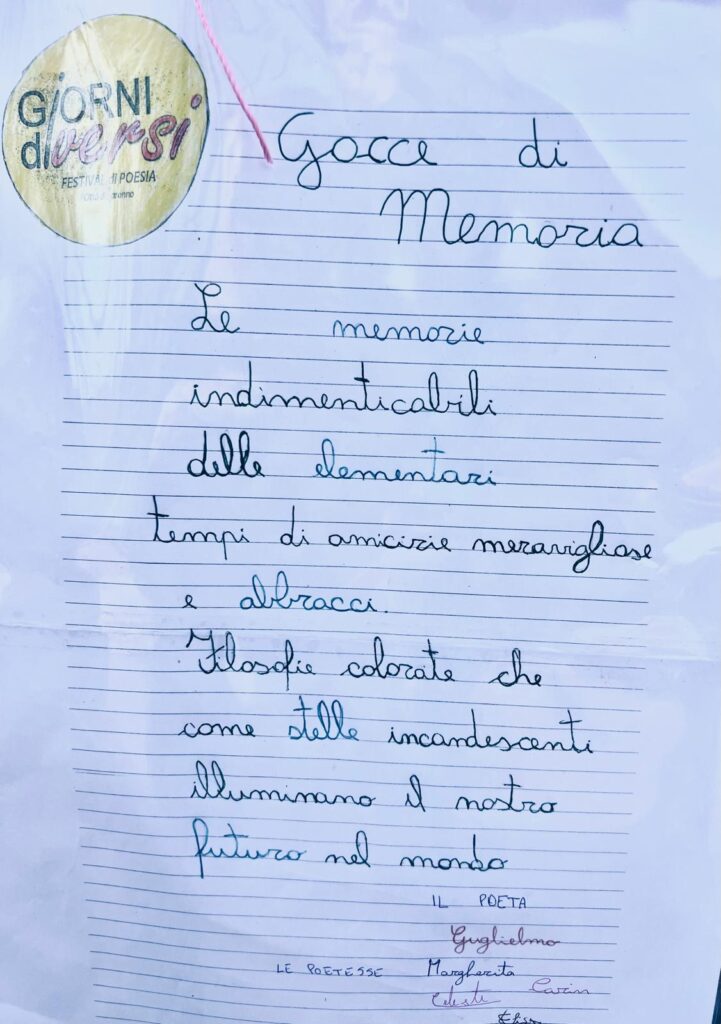 GiORNI
diversi
FESTIVAL di POESIA
Gocce di
Memoria
Le memorie
indimenticabili
delle elementari
tempi di amicizie meravigliose
e abbracci.
Filosofie colorate che
come stelle incandescenti
illuminano il nostro
futuro nel mondo
IL POETA
Guglielmo
LE POETESSE Margherita
Celeste